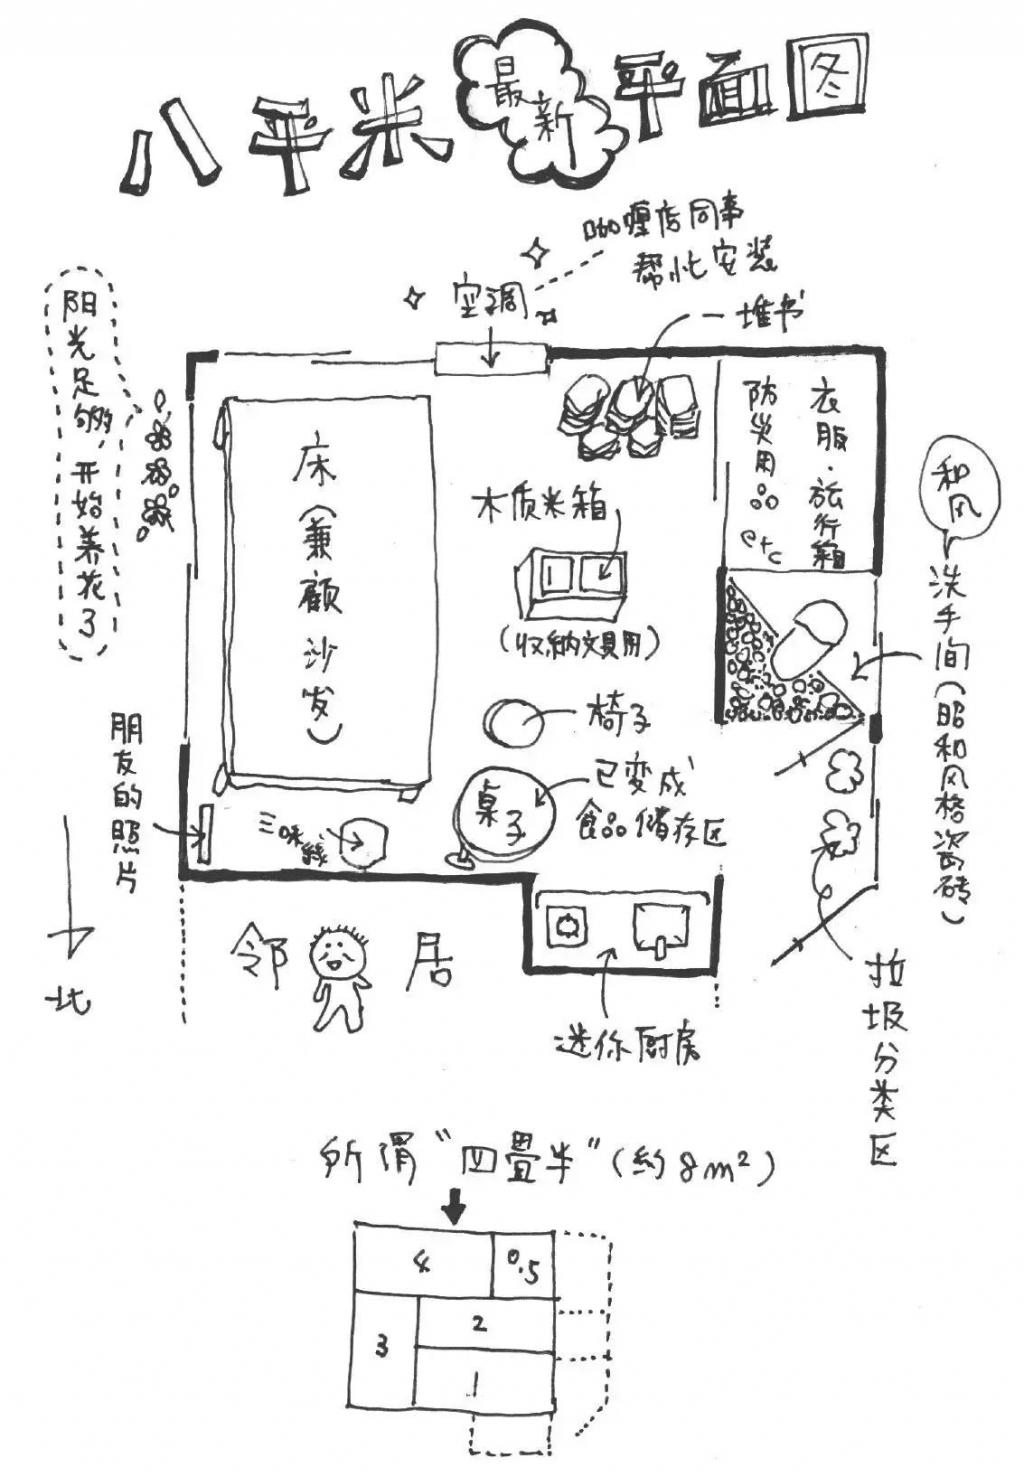 八平米最新平面图
咖喱店同事
帮忙安装
空调
一堆书
阳光足够,开始养花了
床(兼顾沙发)
木质米箱
(收纳文具用)
衣服·旅行箱
防灾用品
etc
和风
洗手间(昭和风格瓷砖)
椅子
桌子
已变成
食品储存区
朋友的照片
三味线
北
邻居
迷你厨房
垃圾分类区
所谓“四畳半”(约8m²)
4
0.5
3
2
1